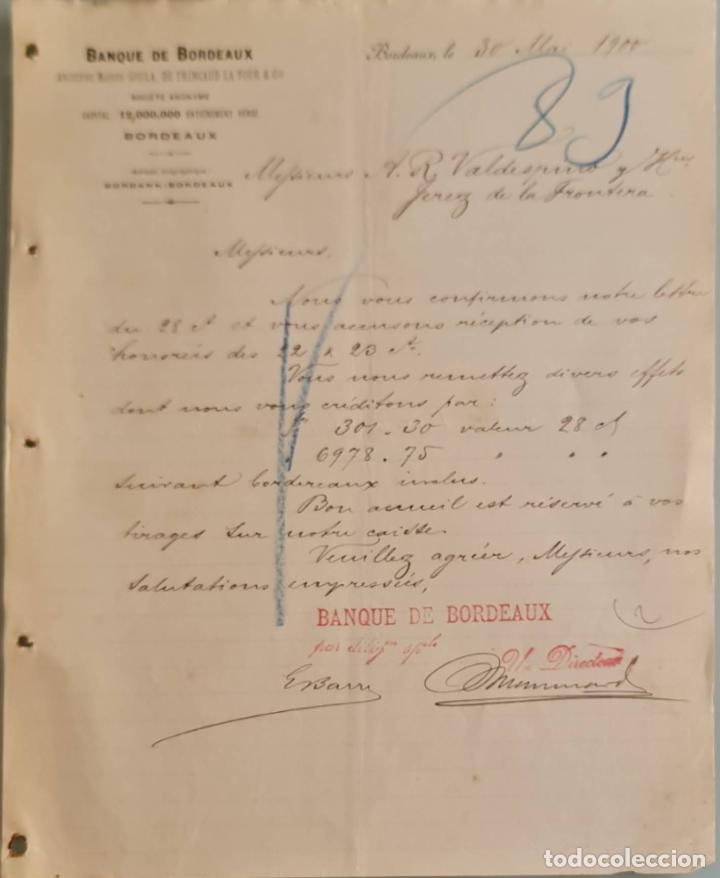 BANQUE DE BORDEAUX
ANCIENNE MAISON SOULA, DE TRINCAUD LA TOUR & Cie
SOCIÉTÉ ANONYME
CAPITAL 12,000,000 ENTIÈREMENT VERSÉ
BORDEAUX
BORBANK-BORDEAUX
Bordeaux, le 30 Mai 1900
89
Messieurs A. R. Valdespino y Hnos
Jerez de la Frontera
Messieurs,
Nous vous confirmons notre lettre
du 28 ct et vous accusons réception de vos
honorées des 22 & 23 ct.
Vous nous remettez divers effets
dont nous vous créditons par:
301.30 valeur 28 ct
6978.75 " " "
suivant bordereaux inclus.
Bon accueil est réservé à vos
tirages sur notre caisse.
Veuillez agréer, Messieurs, nos
salutations empressées,
BANQUE DE BORDEAUX
par délégon sple Un Directeur
EBarre
todocoleccion